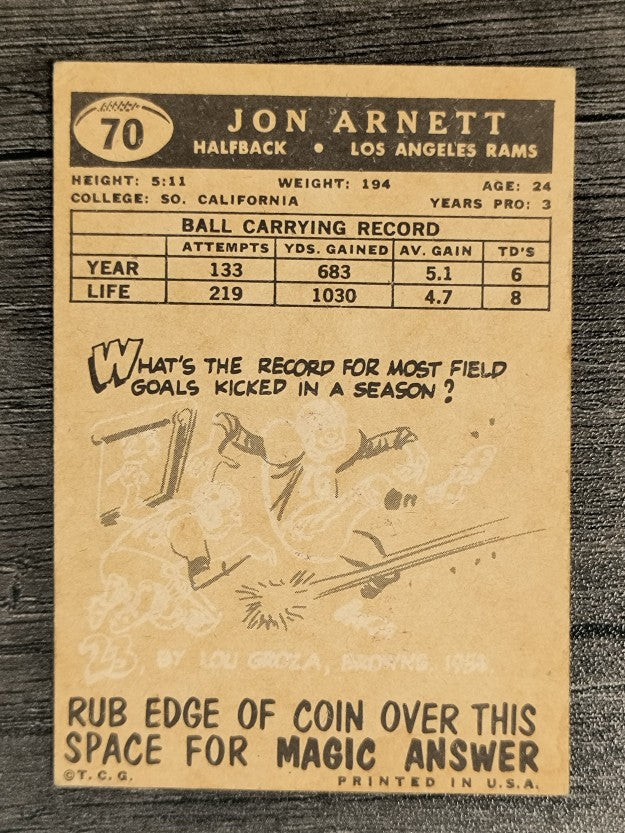 70
JON ARNETT
HALFBACK • LOS ANGELES RAMS
HEIGHT: 5:11 WEIGHT: 194 AGE: 24
COLLEGE: SO. CALIFORNIA YEARS PRO: 3
BALL CARRYING RECORD
ATTEMPTS YDS. GAINED AV. GAIN TD'S
YEAR 133 683 5.1 6
LIFE 219 1030 4.7 8
WHAT'S THE RECORD FOR MOST FIELD
GOALS KICKED IN A SEASON?
23, BY LOU GROZA, BROWNS, 1953.
RUB EDGE OF COIN OVER THIS
SPACE FOR MAGIC ANSWER
©T.C.G. PRINTED IN U.S.A.